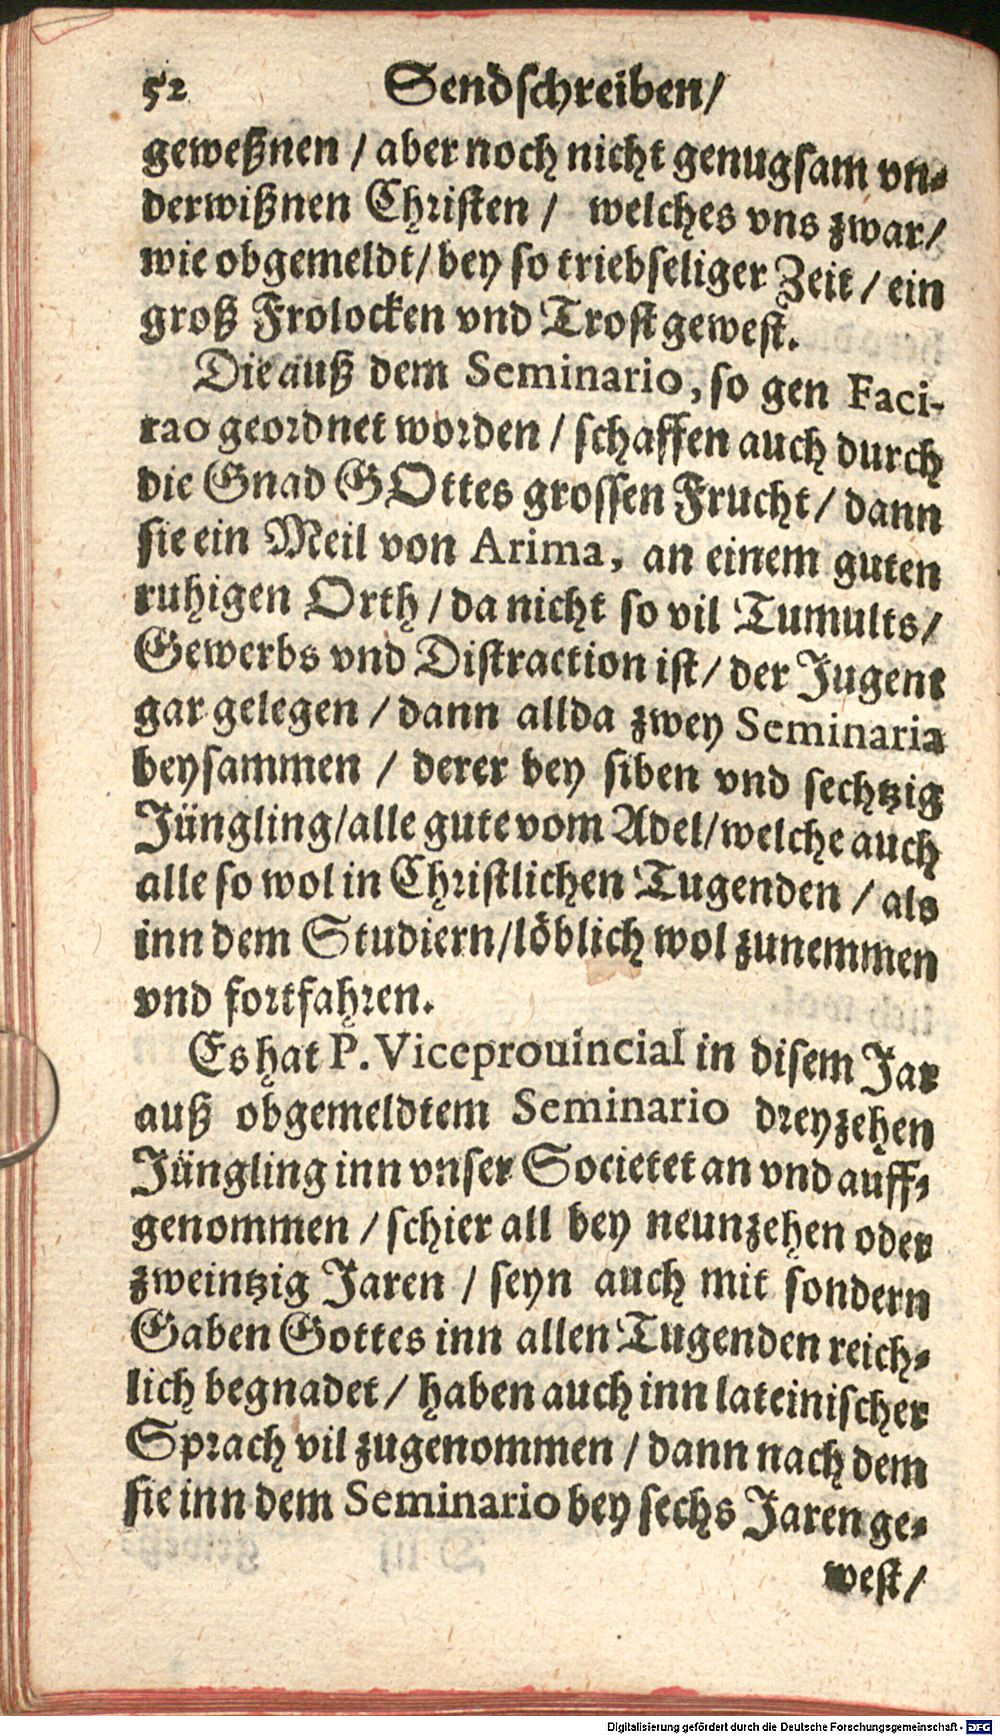 52 Sendschreiben/
geweßnen / aber noch nicht genugsam vn⸗
derwißnen Christen / welches vns zwar/
wie obgemeldt/ bey so triebseliger Zeit / ein
groß Frolocken vnd Trost gewest.
Die auß dem Seminario, so gen Faci-
rao geordnet worden / schaffen auch durch
die Gnad GOttes grossen Frucht / dann
sie ein Meil von Arima, an einem guten
ruhigen Orth / da nicht so vil Tumults/
Gewerbs vnd Distraction ist / der Jugent
gar gelegen / dann allda zwey Seminaria
beysammen / derer bey siben vnd sechtzig
Jüngling/ alle gute vom Adel/ welche auch
alle so wol in Christlichen Tugenden / als
inn dem Studiern/ löblich wol zunemmen
vnd fortfahren.
Es hat P. Viceprouincial in disem Jar
auß obgemeldtem Seminario dreyzehen
Jüngling inn vnser Societet an vnd auff⸗
genommen / schier all bey neunzehen oder
zweintzig Jaren / seyn auch mit sondern
Gaben Gottes inn allen Tugenden reich⸗
lich begnadet / haben auch inn lateinischer
Sprach vil zugenommen / dann nach dem
sie inn dem Seminario bey sechs Jaren ge⸗
west /
Digitalisierung gefördert durch die Deutsche Forschungsgemeinschaft - DFG